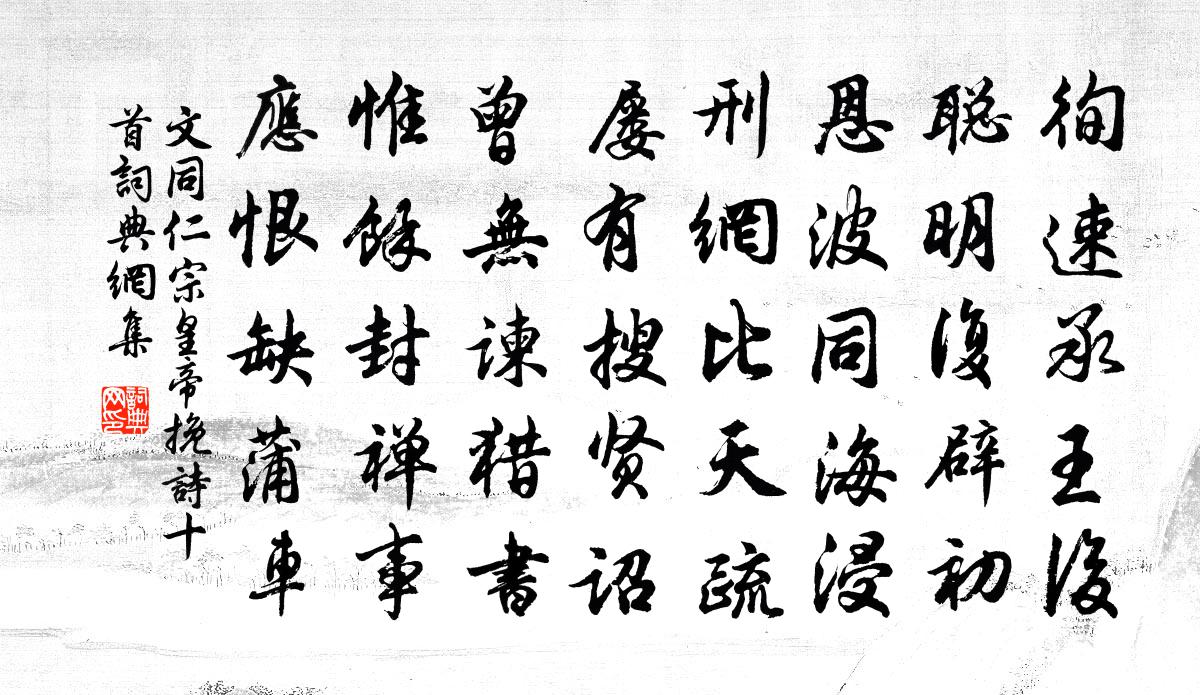 徇速承王後
聪明復辟初
恩波同海浸
刑網比天疏
屡有搜贤诏
曾無諌猎書
惟餘封禅事
應恨缺蒲車
文同仁宗皇帝挽詩十
首詞典網集
詞典網印